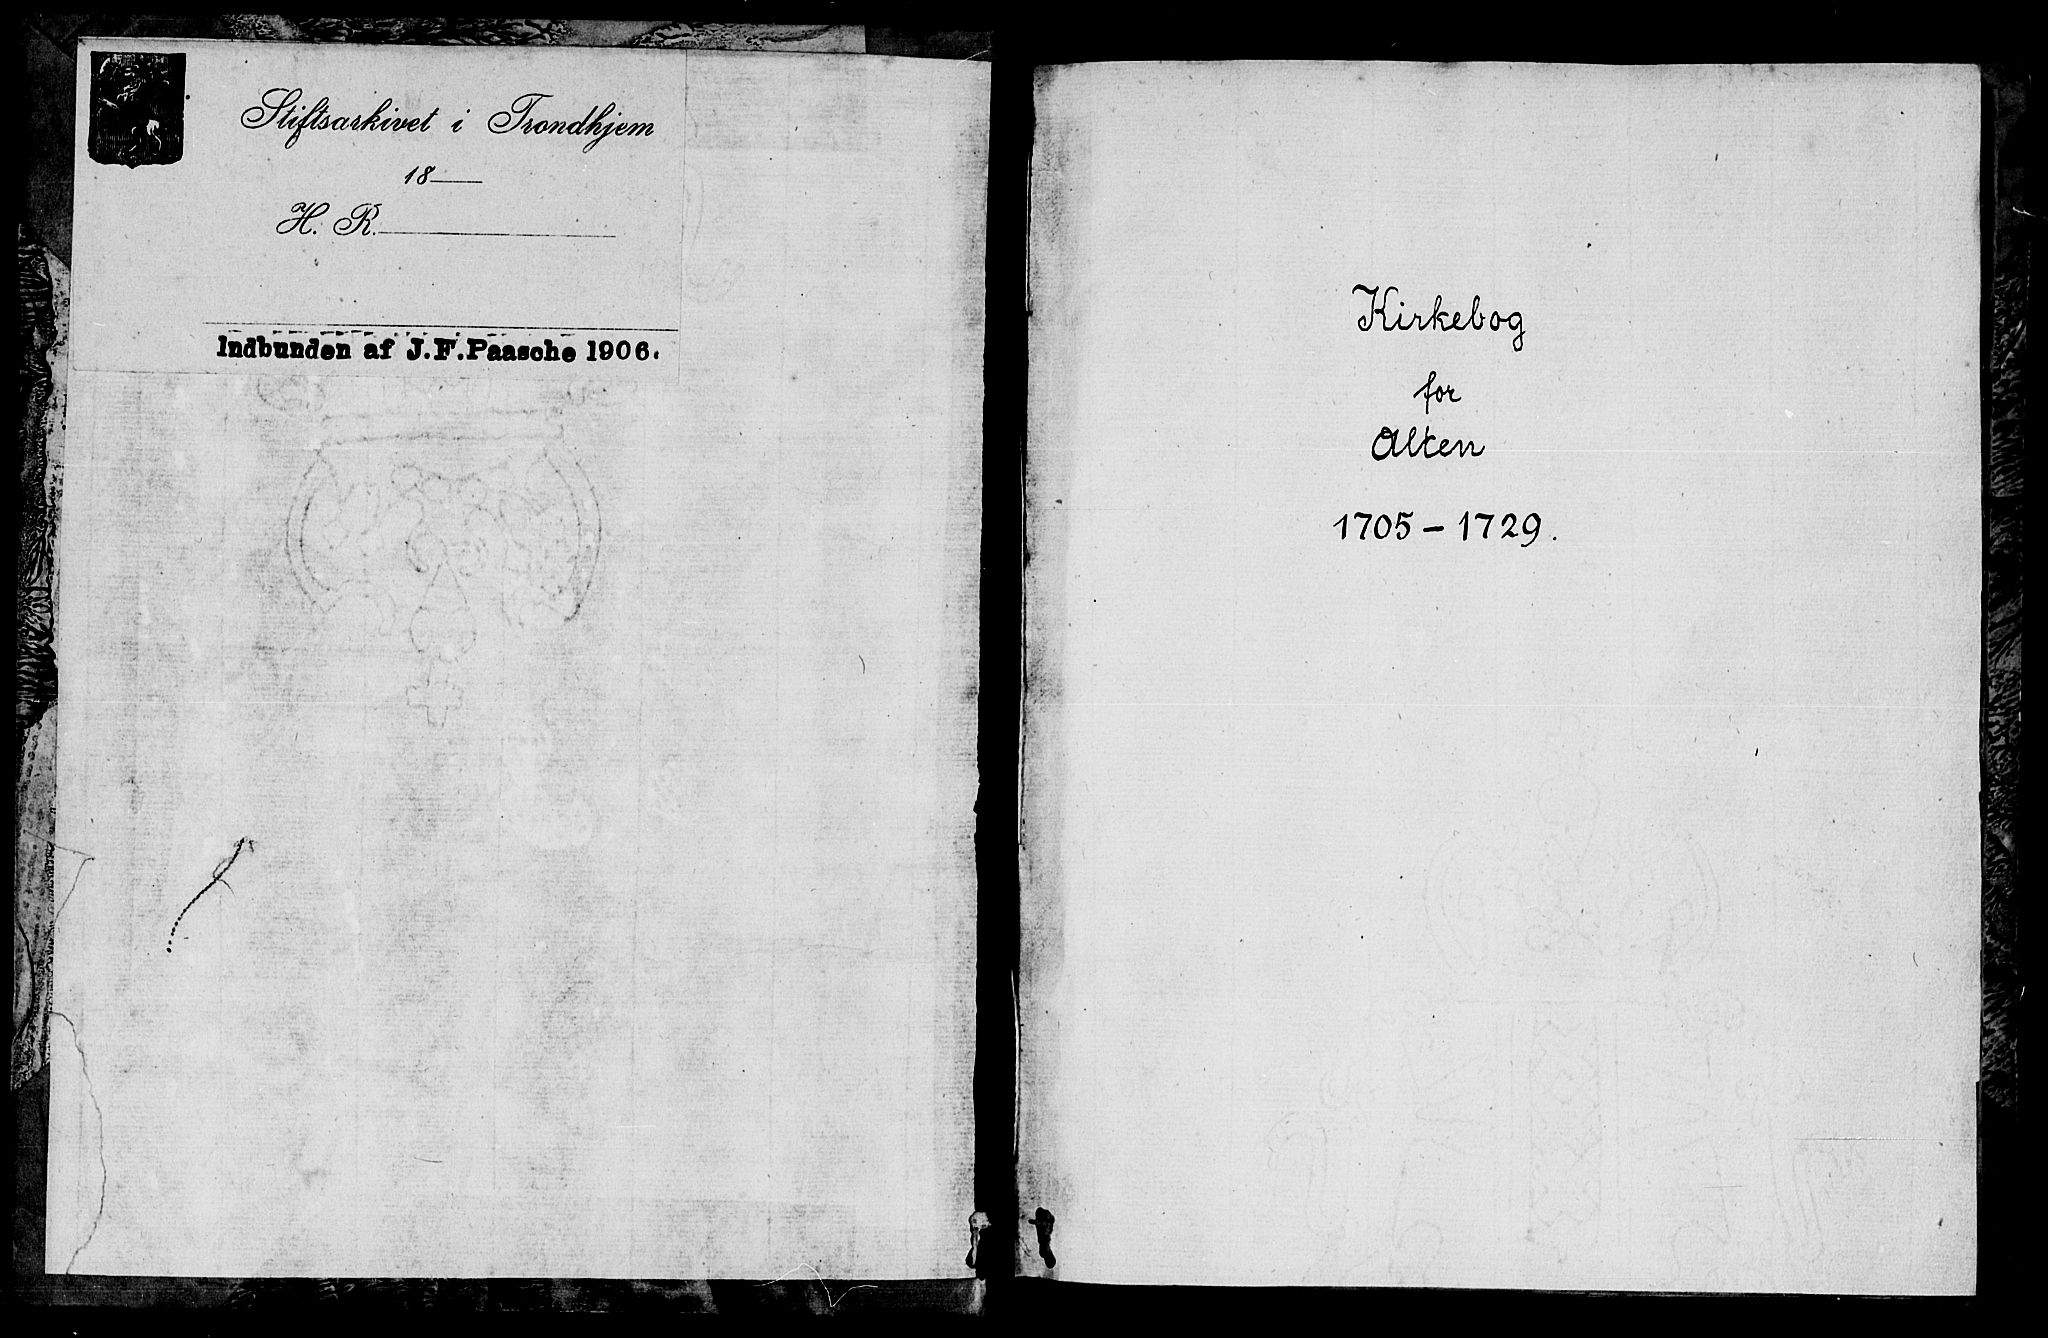 Stiftsarkivet i Trondhjem
18
H. R.
Indbunden af J. F. Paasche 1906.
Kirkebog
for
Alten
1705 - 1729.